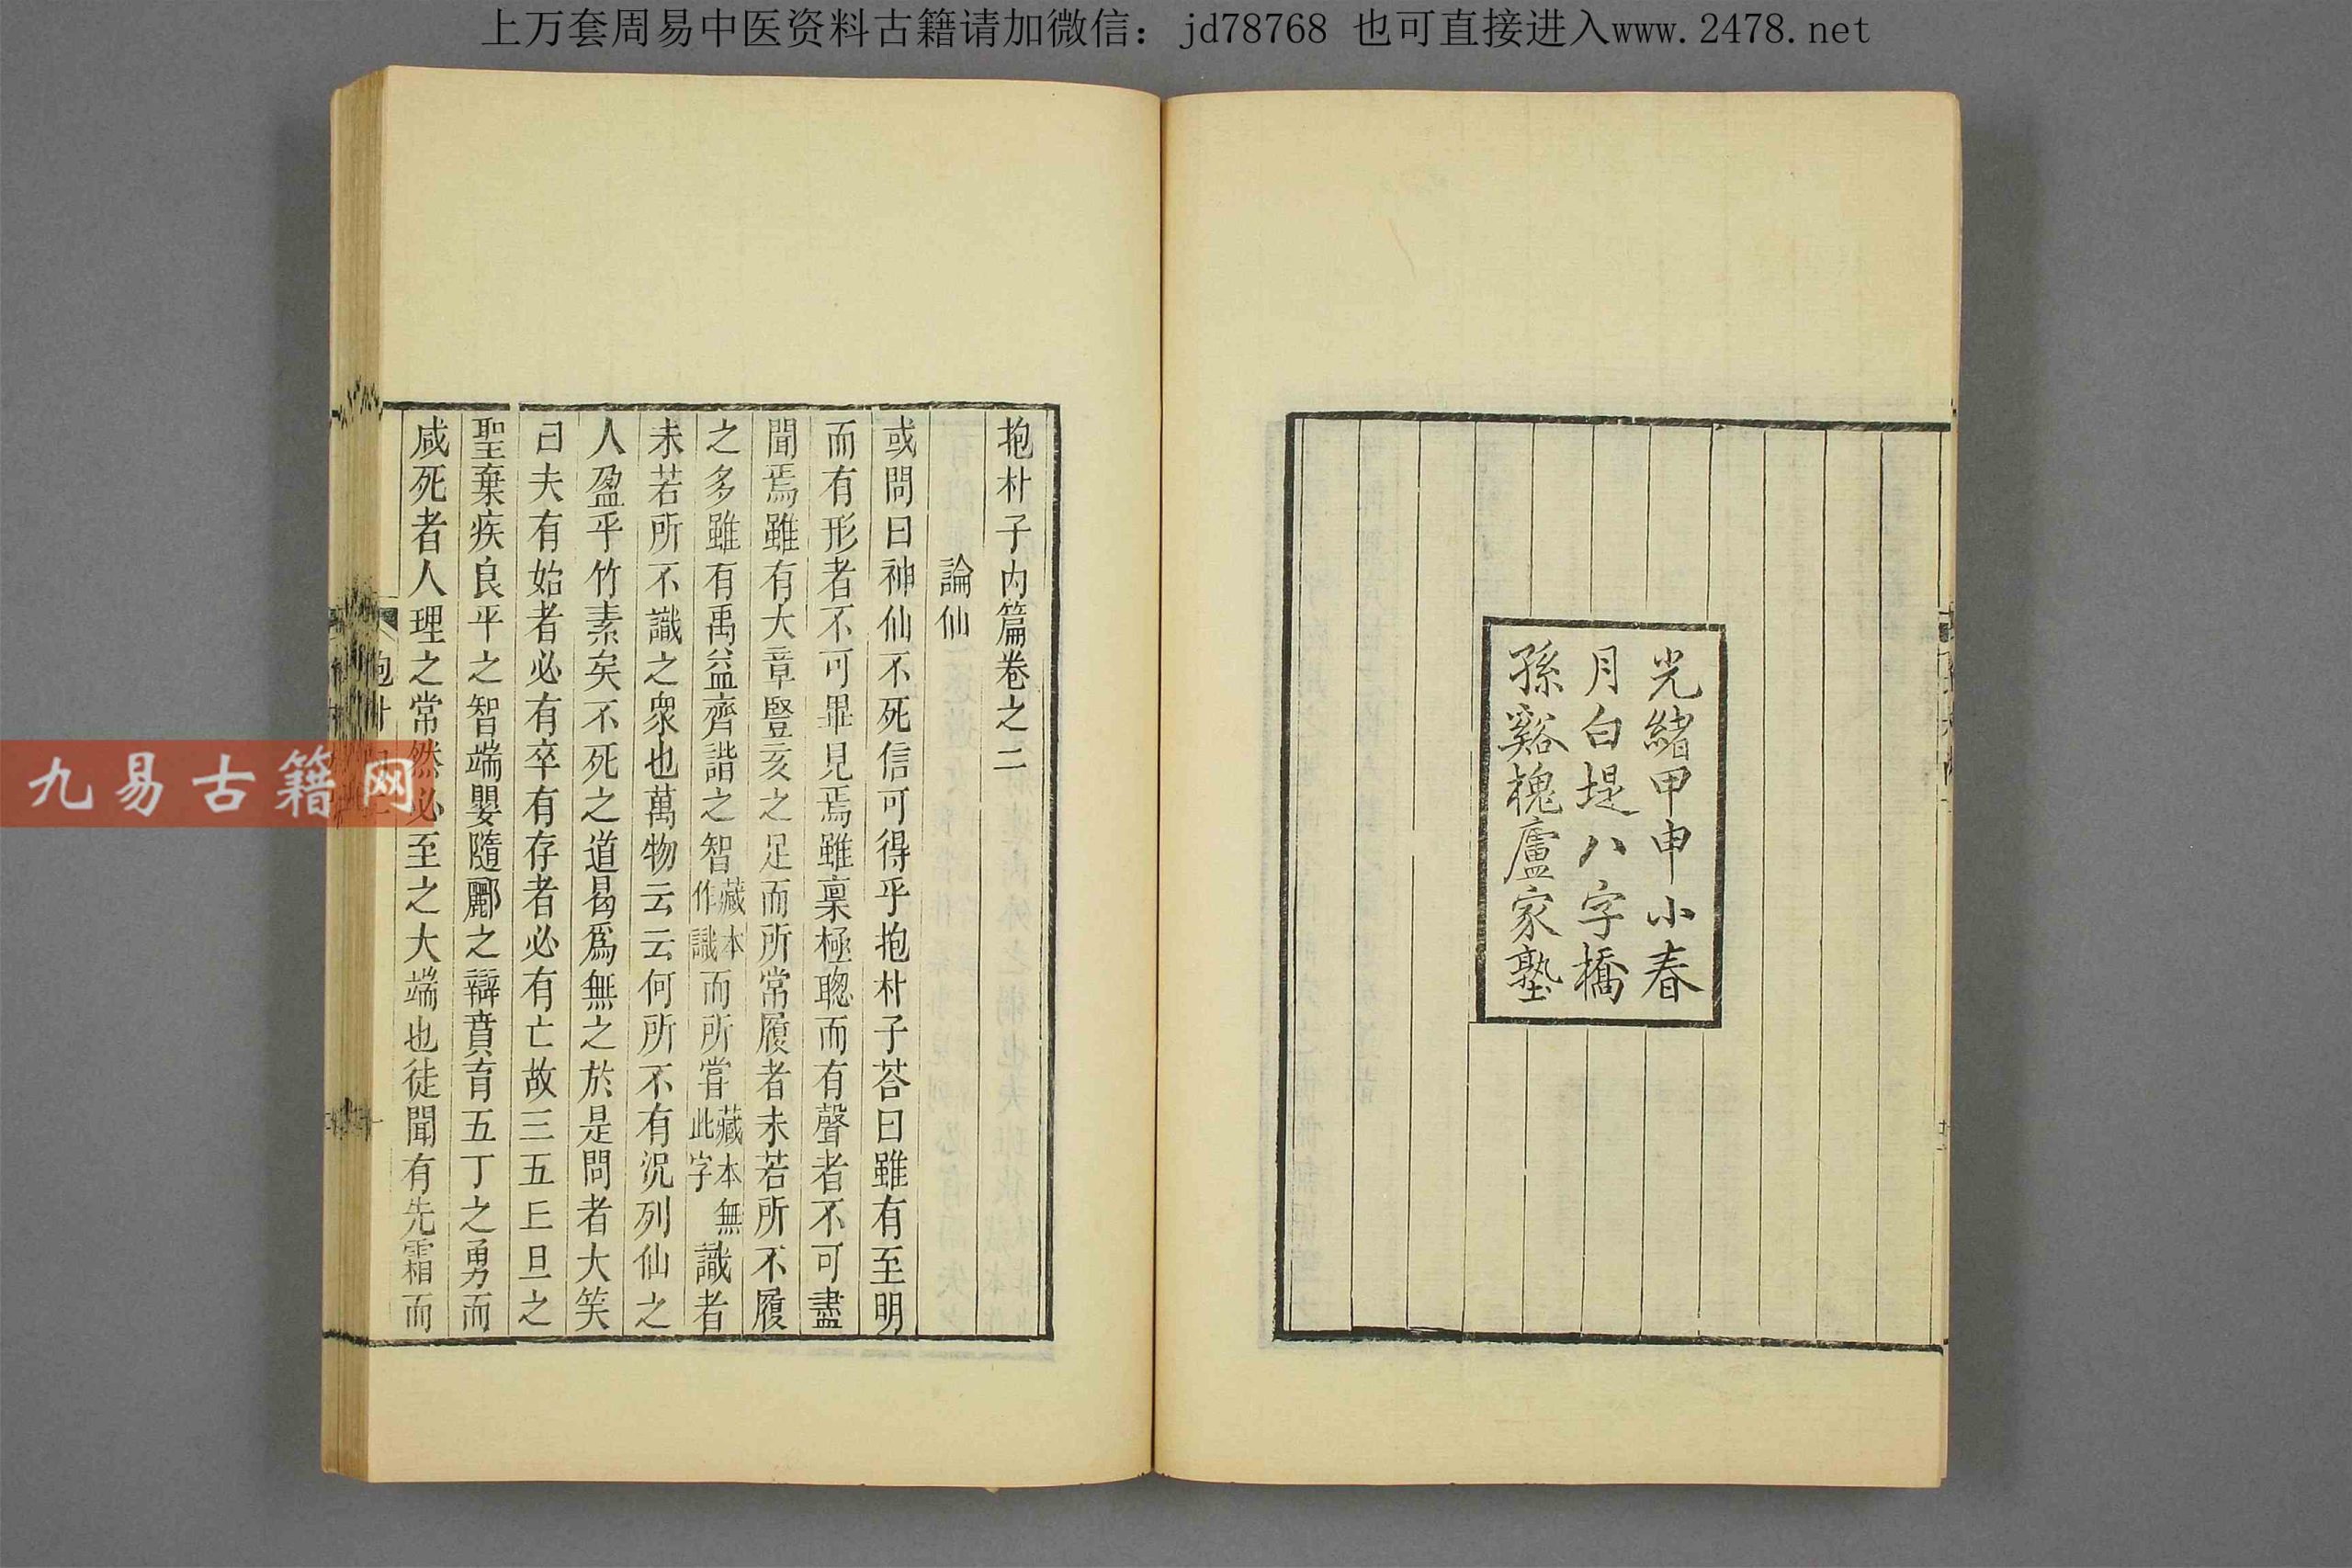 上万套周易中医资料古籍请加微信：jd78768 也可直接进入www.2478.net
光緒甲申小春
月白堤八字橋
孫谿槐廬家塾
抱朴子内篇卷之二
論仙
或問曰神仙不死信可得乎抱朴子荅曰雖有至明
而有形者不可畢見焉雖稟極聰而有聲者不可盡
聞焉雖有大章豎亥之足而所常履者未若所不履
之多雖有禹益齊諧之智藏本作識而所嘗藏本無此字識者
未若所不識之衆也萬物云云何所不有況列仙之
人盈乎竹素矣不死之道曷爲無之於是問者大笑
曰夫有始者必有卒有存者必有亡故三五丘旦之
聖棄疾良平之智端嬰隨酈之辯賁育五丁之勇而
咸死者人理之常然必至之大端也徒聞有先霜而
抱朴
九易古籍网